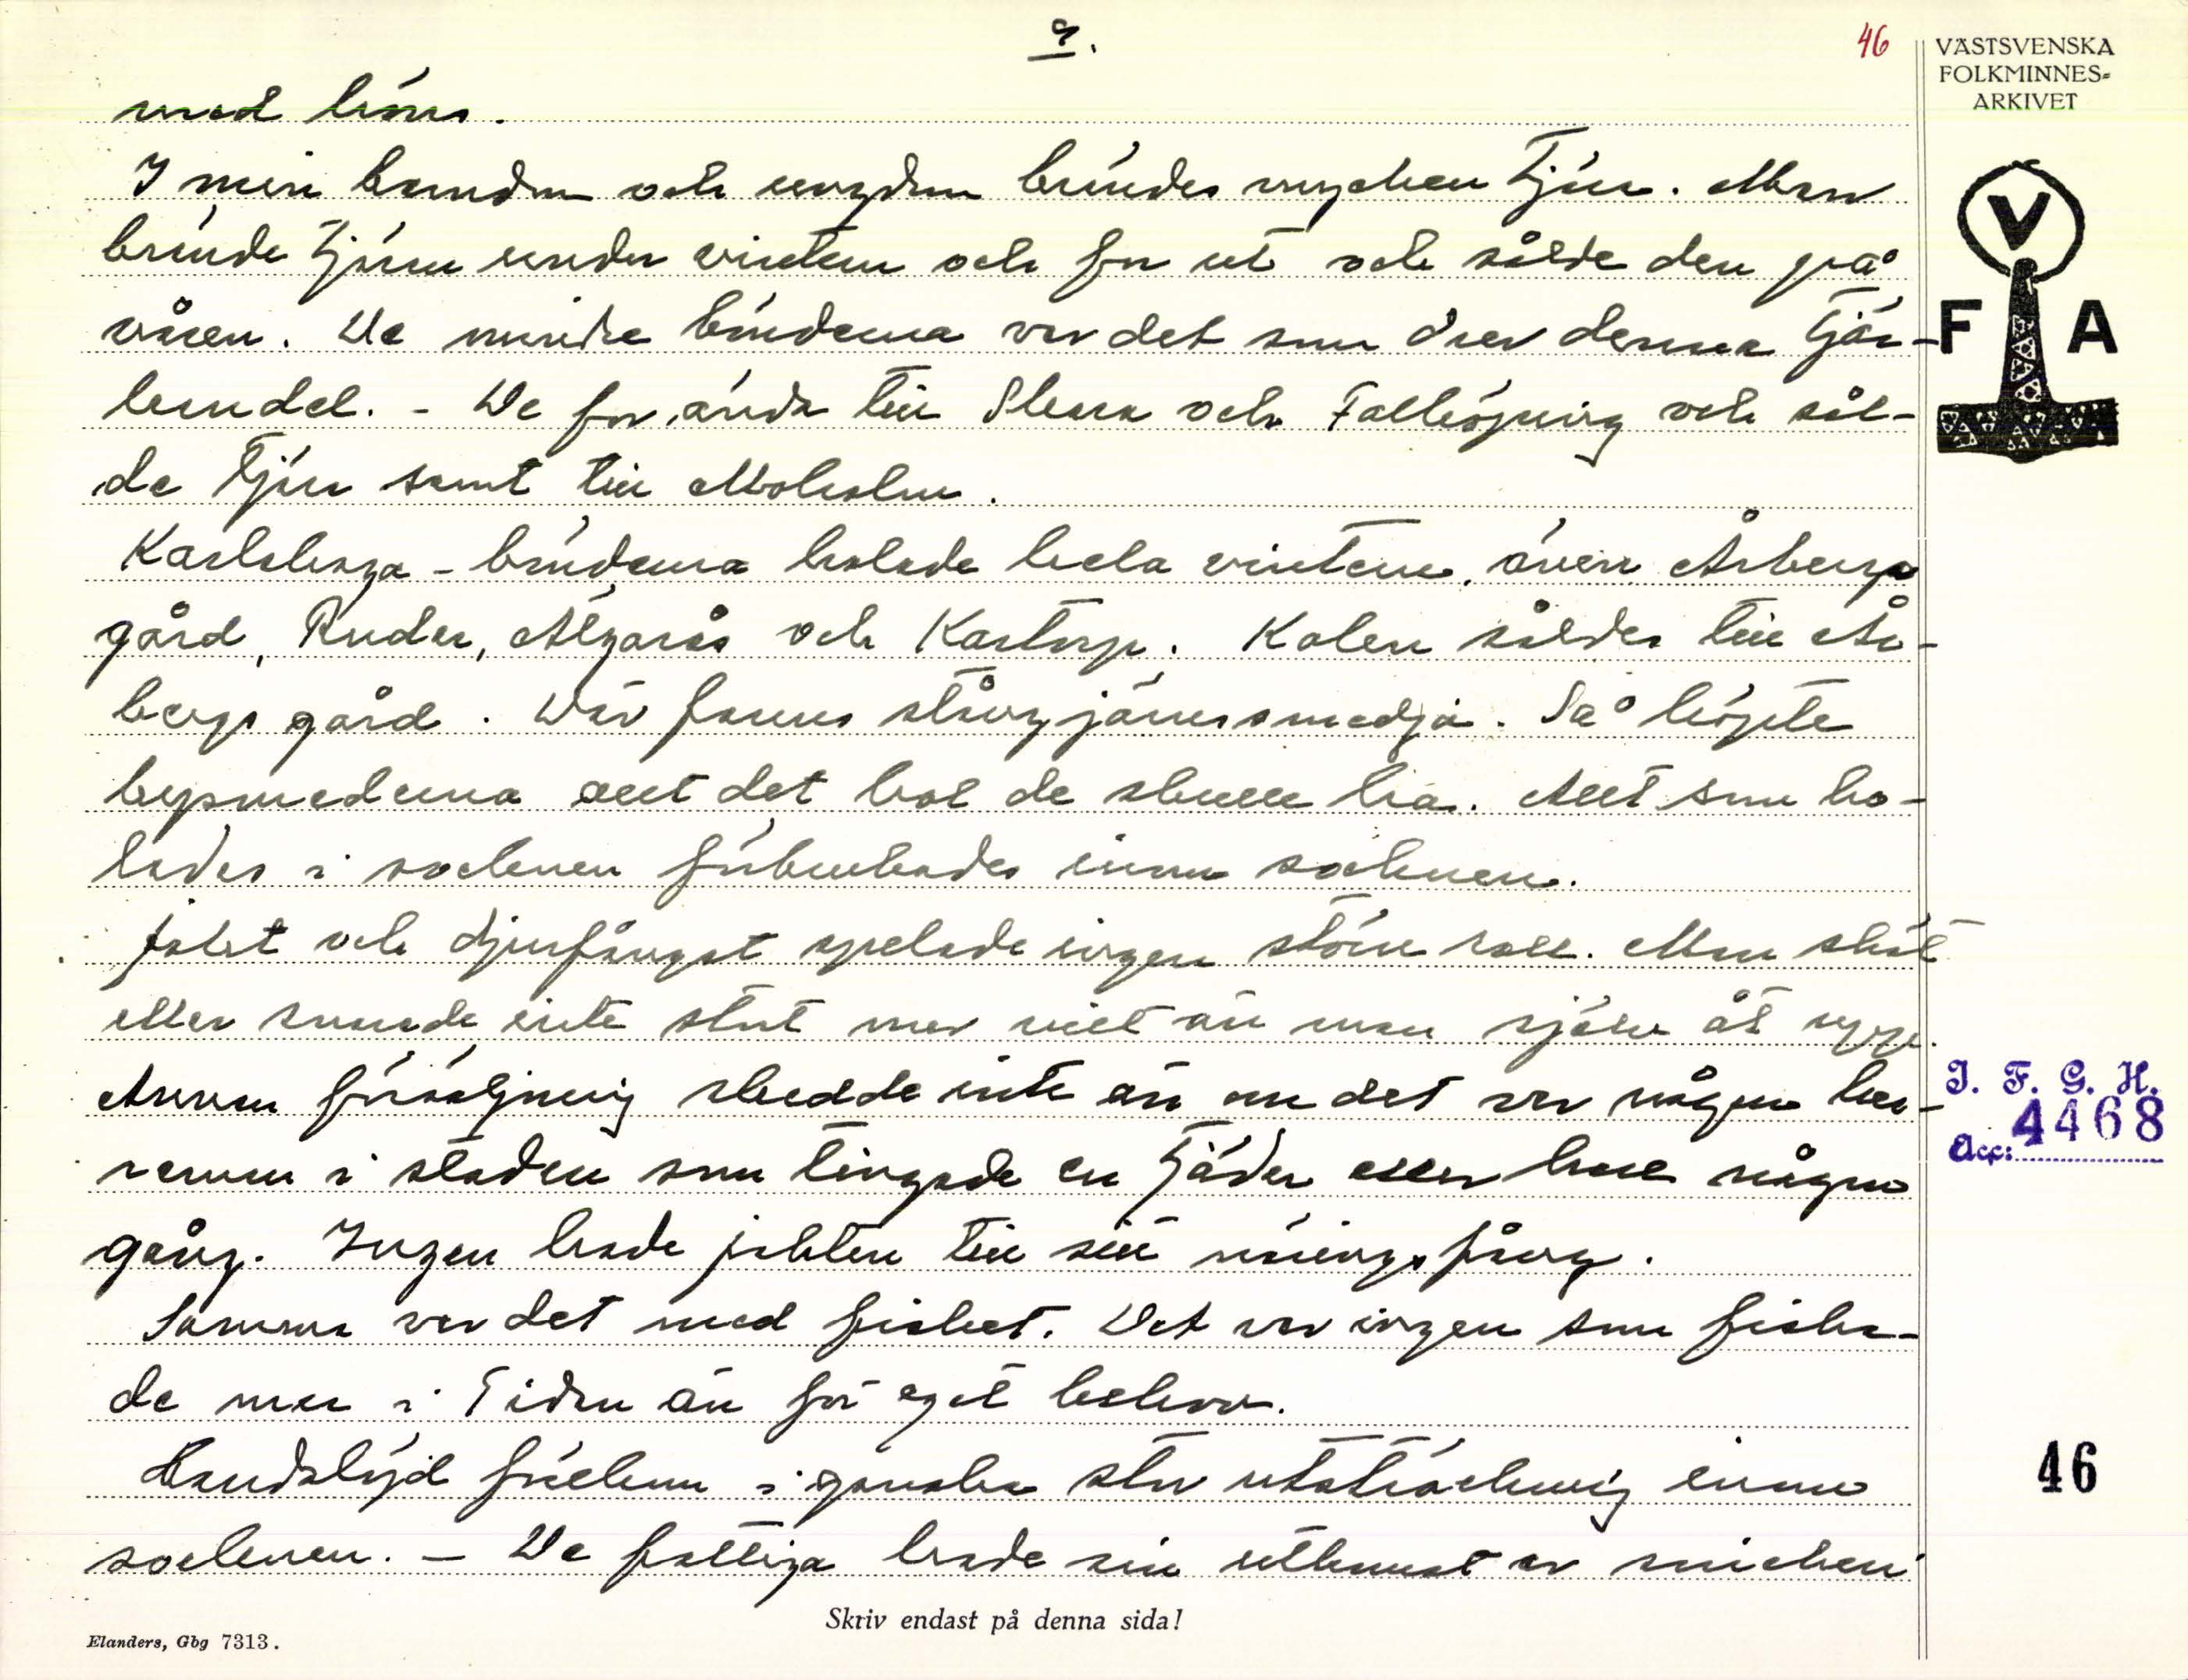 9.
46
VÄSTSVENSKA
FOLKMINNES=
ARKIVET
med körs.
I min barndom och ungdom brändes mycken tjära. Man
brände tjäran under vintern och for ut och sålde den på
våren. De mindre bönderna var det som drev denna tjär-
handel. - De for ända till Skara och Falköping och sål-
de tjära samt till Moholm.
Karlsborga-bönderna kolade hela vintern, även Årbergs
gård, Ruder, Älgarås och Kartorp. Kolen såldes till År-
bergs gård. Där fanns stångjärnssmedja. Så köpte
bysmederna allt det kol de skulle ha. Allt som ko-
lades i socknen förbrukades inom socknen.
Jakt och djurfångst spelade ingen större roll. Man sköt
eller snarade inte stort mer vilt än man själv åt upp.
Annan försäljning skedde inte än om det var någon her-
reman i staden som tingade en tjäder eller hare någon
gång. Ingen hade jakten till sin näringsfång.
Samma var det med fisket. Det var ingen som fiska-
de mer i Tiden än för eget behov.
Handslöjd förekom i ganska stor utsträckning inom
socknen. - De fattiga hade sin utkomst av snickeri
Skriv endast på denna sida!
Elanders, Gbg 7313.
V
F A
I. F. G. H.
Acc: 4468
46